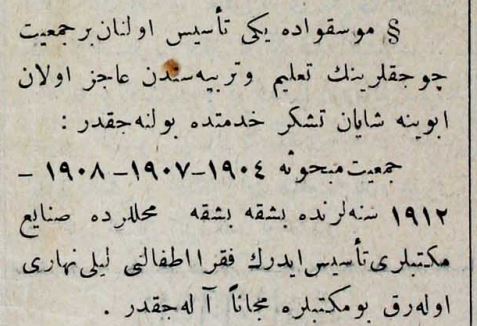 § موسقواده يكى تأسيس اولنان بر جمعيت
چوجقلرينك تعليم وتربيه سندن عاجز اولان
ابوينه شايان تشكر خدمتده بولنه جقدر :
جمعيت مبحوثه ١٩٠٤–١٩٠٧–١٩٠٨ –
١٩١٢ سنه لرنده بشقه بشقه محللرده صنايع
مكتبلرى تأسيس ايدرك فقرا اطفالنى ليلى نهارى
اوله رق بو مكتبلره مجاناً آله جقدر .